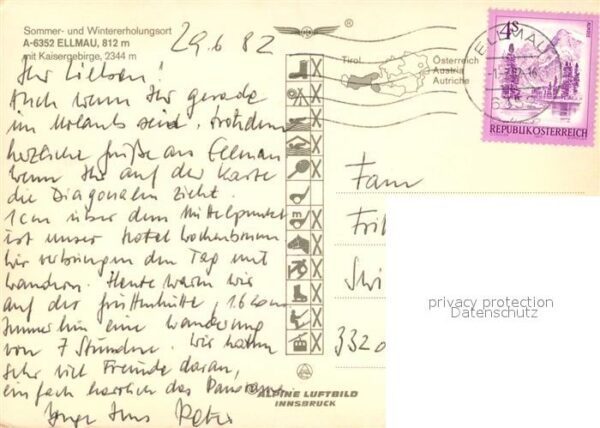 Sommer- und Wintererholungsort
A-6352 ELLMAU, 812 m
mit Kaisergebirge, 2344 m
29.6.82
Ihr Lieben!
Auch wenn Ihr gerade
im Urlaub seid, trotzdem
herzliche Grüße aus Ellmau
wenn Ihr auf der Karte
die Diagonalen zieht.
1 cm über dem Mittelpunkt
ist unser Hotel Hochbrunn
Wir verbringen den Tag mit
wandern. Heute waren wir
auf der Gruttenhütte, 1620m
Immerhin eine Wanderung
von 7 Stunden. Wir hatten
sehr viel Freude daran,
einfach herrlich das Panorama.
Peter
®
Tirol
Österreich
Austria
Autriche
4S
ELLMAU
REPUBLIK ÖSTERREICH
Fam
3320
privacy protection
Datenschutz
ALPINE LUFTBILD
INNSBRUCK